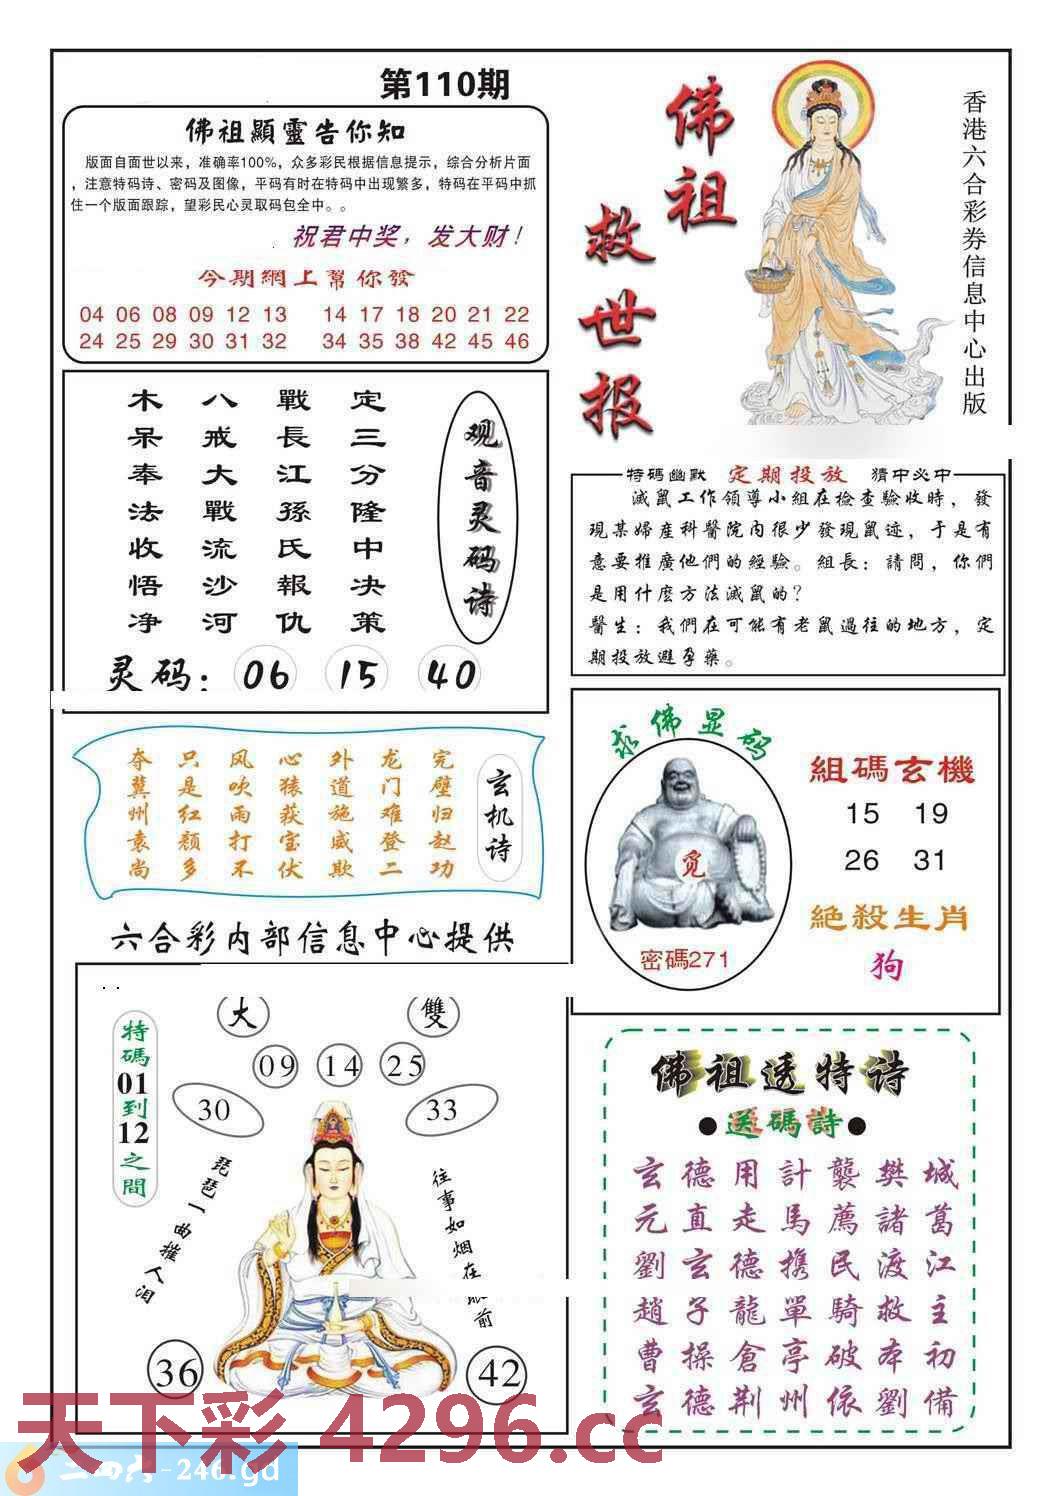 第110期
佛祖顯靈告你知
版面自面世以来，准确率100%，众多彩民根据信息提示，综合分析片面
，注意特码诗、密码及图像，平码有时在特码中出现繁多，特码在平码中抓
住一个版面跟踪，望彩民心灵取码包全中。。
祝君中奖，发大财！
今期網上幫你發
04 06 08 09 12 13 14 17 18 20 21 22
24 25 29 30 31 32 34 35 38 42 45 46
佛祖救世报
香港六合彩券信息中心出版
观音灵码诗
定三分隆中决策
戰長江孫氏報仇
八戒大戰流沙河
木呆奉法收悟净
灵码：06 15 40
特碼幽默 定期投放 猜中必中
滅鼠工作領導小組在檢查驗收時，發
現某婦產科醫院內很少發現鼠迹，于是有
意要推廣他們的經驗。組長：請問，你們
是用什麼方法滅鼠的？
醫生：我們在可能有老鼠過往的地方，定
期投放避孕藥。
玄机诗
完璧归赵功
龙门难登二
外道施威欺
心猿获宝伏
风吹雨打不
只是红颜多
夺冀州袁尚
求佛显码
觅
密碼271
組碼玄機
15 19
26 31
絕殺生肖
狗
六合彩内部信息中心提供
大
雙
09 14 25
30
33
特碼01到12之間
琵琶一曲摧人泪
往事如烟在眼前
36
42
佛祖透特诗
●送碼詩●
玄德用計襲樊城
元直走馬薦諸葛
劉玄德携民渡江
趙子龍單騎救主
曹操倉亭破本初
玄德荆州依劉備
天下彩 4296.cc
二四六-246.gd